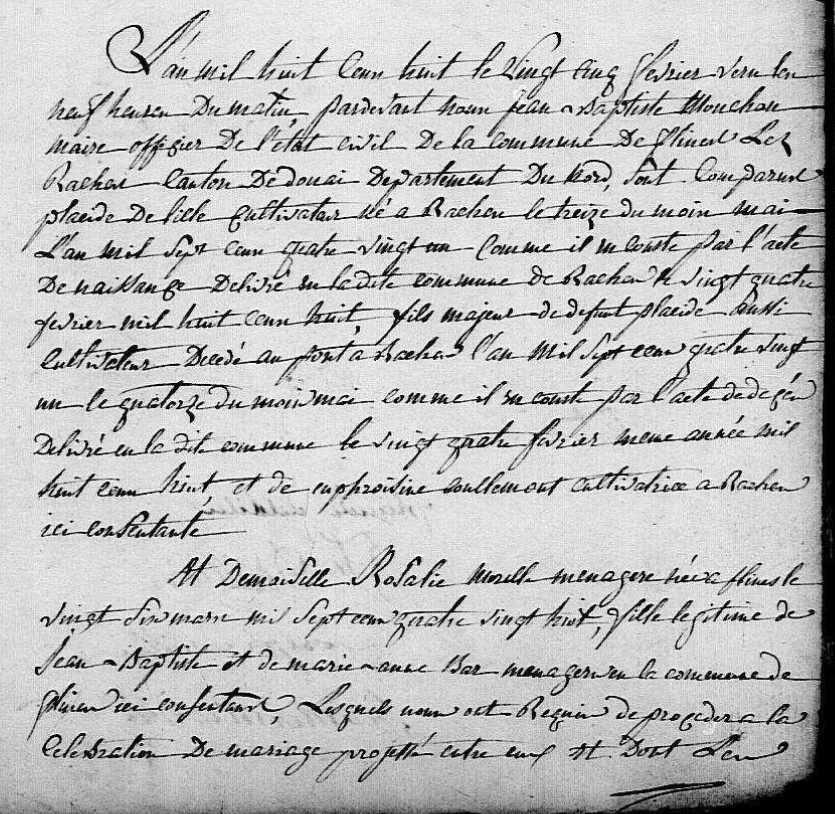 L'an mil huit cent huit le vingt cinq fevrier vers les
neuf heures Du matin, pardevant nous jean-Baptiste Mouchon
maire officier De l'état civil De la commune De flines Lez
Raches Canton De douai Departement Du Nord, sont Comparus
placide De lille Cultivateur né a Raches le treize du mois mai
L'an mil Sept cens quatre vingt un Comme il en conste par l'acte
De naissance Delivré en la dite commune de Raches le vingt quatre
fevrier mil huit cens huit, fils majeur de defunt placide aussi
cultivateur Decedé au pont a Raches l'an mil Sept cens quatre vingt
un le quatorze du mois mai comme il en conste par l'acte de decés
Delivré en la dite commune le vingt quatre fevrier meme année mil
huit cens huit, et de cultivatrice a Raches
ici consentante
Et Demoiselle Rosalie morelle menagere née a flines le
vingt six mars mil Sept cens quatre vingt huit, fille legitime de
jean-Baptiste et de marie-anne Bar menagers en la commune de
flines ici consentans, Lesquels nous ont Requis de proceder a la
Celebration De mariage projetté entre eux Et Dont Les